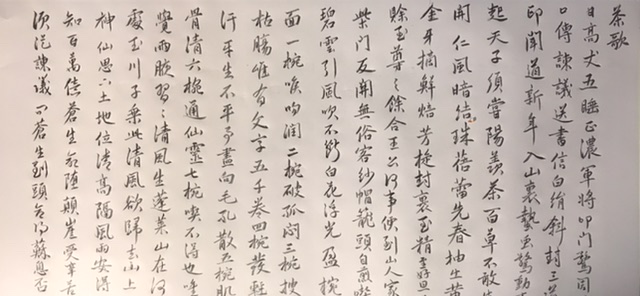 茶歌
日高丈五睡正濃軍將叩門驚周
口傳諫議送書信白絹斜封三道
印聞道新年入山裏蟄虫驚動
起天子須嘗陽羨茶百草不敢
開仁風暗結珠蓓蕾先春抽出黃
金牙摘鮮焙芳旋封裹至精至好且
賒至尊之餘合王公何事便到山人家
柴門反關無俗客紗帽籠頭自煎喫
碧雲引風吹不斷白花浮光盈椀
面一椀喉吻潤二椀破孤悶三椀搜
枯腸唯有文字五千卷四椀發輕
汗平生不平事盡向毛孔散五椀肌
骨清六椀通仙靈七椀喫不得也唯
覺兩腋習習清風生蓬萊山在何
處玉川子乘此清風欲歸去山上
神仙思下土地位清高隔風雨安得
知百萬億蒼生命墮顛崖受辛苦
須從諫議问蒼生到頭還得蘇息否